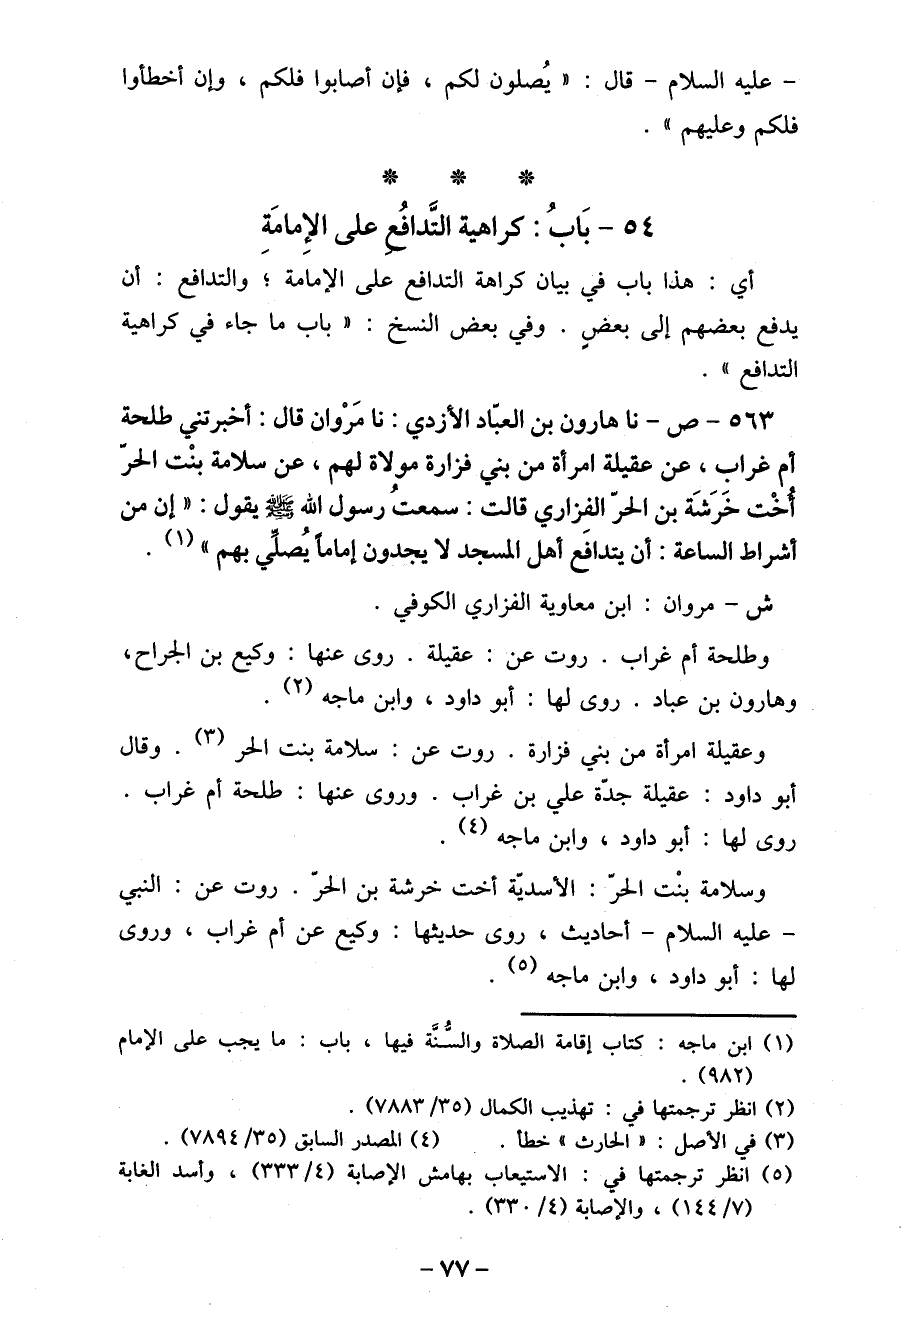 - عليه السلام - قال : « يُصلون لكم ، فإن أصابوا فلكم ، وإن أخطأوا
فلكم وعليهم » .
* * *
٥٤ - بَابُ : كراهية التَّدافُعِ على الإِمامَةِ
أي : هذا باب في بيان كراهة التدافع على الإمامة ؛ والتدافع : أن
يدفع بعضهم إلى بعضٍ . وفي بعض النسخ : « باب ما جاء في كراهية
التدافع » .
٥٦٣ - ص - نا هارون بن العبّاد الأزدي : نا مَرْوان قال : أخبرتني طلحة
أم غراب ، عن عقيلة امرأة من بني فزارة مولاة لهم ، عن سلامة بنْت الحرّ
أُخْت خَرَشَة بن الحرّ الفزاري قالت : سمعتُ رسول الله ﷺ يقول : « إن من
أشراط الساعة : أن يتدافَع أهل المسجد لا يجدون إماماً يُصلِّي بهم » (١) .
ش - مروان : ابن معاوية الفزاري الكوفي .
وطلحة أم غراب . روت عن : عقيلة . روى عنها : وكيع بن الجراح،
وهارون بن عباد . روى لها : أبو داود ، وابن ماجه (٢) .
وعقيلة امرأة من بني فزارة . روت عن : سلامة بنت الحر (٣) . وقال
أبو داود : عقيلة جدّة علي بن غراب . وروى عنها : طلحة أم غراب .
روى لها : أبو داود ، وابن ماجه (٤) .
وسلامة بنْت الحرّ : الأسديّة أخت خرشة بن الحرّ . روت عن : النبي
- عليه السلام - أحاديث ، روى حديثها : وكيع عن أم غراب ، وروى
لها : أبو داود ، وابن ماجه (٥) .
(١) ابن ماجه : كتاب إقامة الصلاة والسُّنَّة فيها ، باب : ما يجب على الإمام
(٩٨٢) .
(٢) انظر ترجمتها في : تهذيب الكمال (٣٥/ ٧٨٨٣) .
(٣) في الأصل : « الحارث » خطأ . (٤) المصدر السابق (٣٥/ ٧٨٩٤) .
(٥) انظر ترجمتها في : الاستيعاب بهامش الإصابة (٤/ ٣٣٣) ، وأسد الغابة
(٧/ ١٤٤) ، والإصابة (٤/ ٣٣٠) .
- ٧٧ -